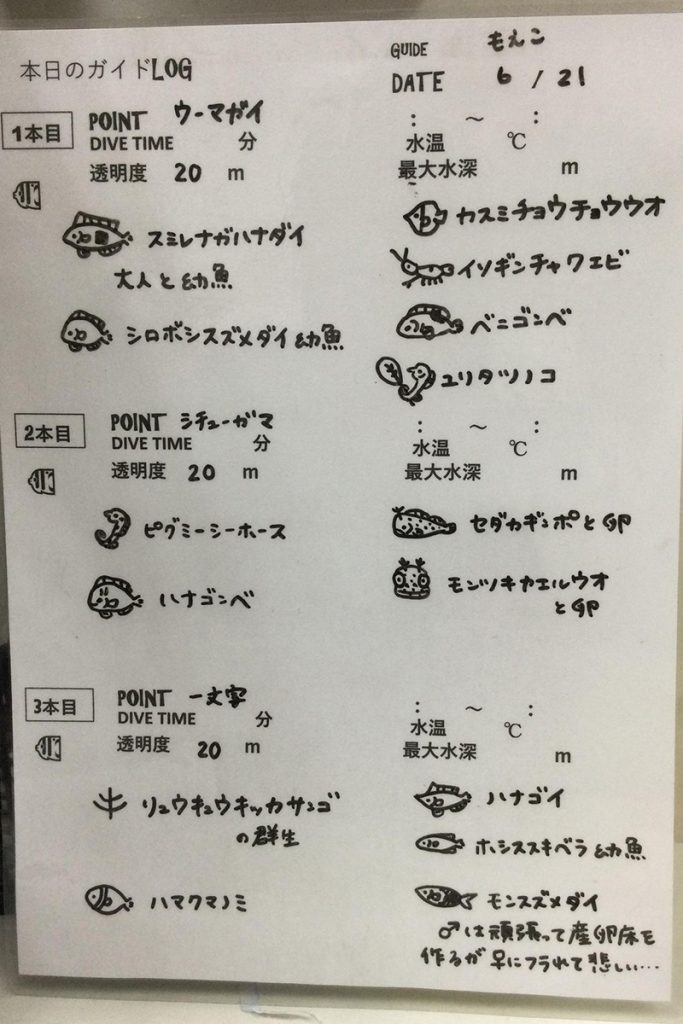 本日のガイドLOG
GUIDE もえこ
DATE 6 / 21
1本目
POINT ウーマガイ
DIVE TIME 分
透明度 20 m
: ～ :
水温 ℃
最大水深 m
スミレナガハナダイ
大人と幼魚
シロボシスズメダイ幼魚
カスミチョウチョウウオ
イソギンチャクエビ
ベニゴンベ
ユリタツノコ
2本目
POINT シチューガマ
DIVE TIME 分
透明度 20 m
: ～ :
水温 ℃
最大水深 m
ピグミーシーホース
ハナゴンベ
セダカギンポと卵
モンツキカエルウオ
と卵
3本目
POINT 一文字
DIVE TIME 分
透明度 20 m
: ～ :
水温 ℃
最大水深 m
リュウキュウキッカサンゴ
の群生
ハマクマノミ
ハナゴイ
ホシススキベラ幼魚
モンスズメダイ
♂は頑張って産卵床を
作るが♀にフラれて悲しい…